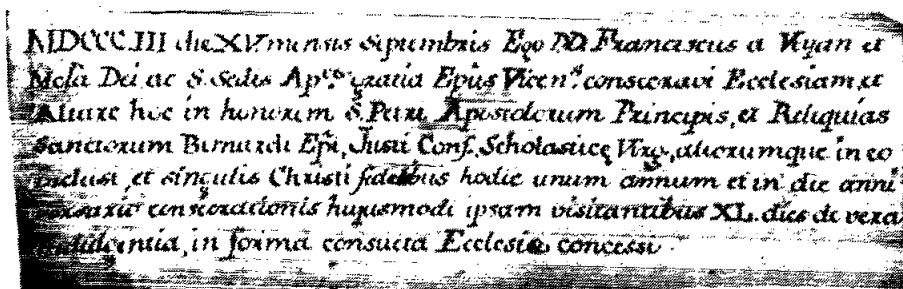 MDCCCIII die XV mensis septembris Ego DD. Franciscus a Veyan et
Mola Dei ac S. Sedis Ap.ᶜᵃ gratia Epũs Vicen.ˢ consecravi Ecclesiam, et
Altare hoc in honorem S. Petri Apostolorum Principis, et Reliquias
Sanctorum Bernardi Epĩ, Justi Conf. Scholasticę Virg. aliorumque in eo
inclusi, et singulis Christi fidelibus hodie unum annum et in die anni
versario consecrationis hujusmodi ipsam visitantibus XL. dies de vera
indulgentia, in forma consueta Ecclesia concessi.